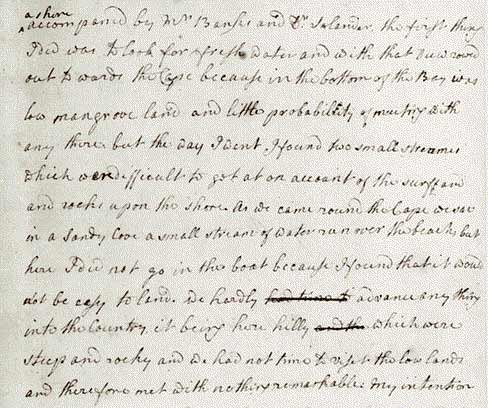 a shore
accompanied by Mr Banks and Dr Solander, the first thing
I did was to look for a fresh water and with that view rowed
out to wards the Cape because in the bottom of the Bay was
low mangrove land and little probability of meeting with
any there. but the day I went, I found two small streames
which were difficult to get at on account of the surff and
and rocks upon the shore. As we came round the Cape we saw
in a sandy Cove a small stream of water run over the beach, but
here I did not go in the boat because I found that it would
not be easy to land. we hardly had time to advance any thing
into the Country it being here hilly and the which were
steep and rocky and we had not time to visit the low lands
and therefore met with nothing remarkable. My intention